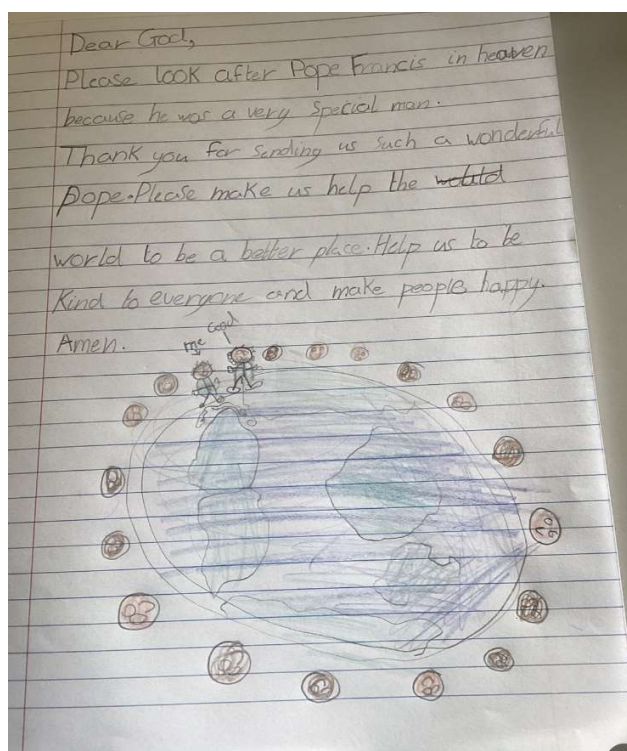 Dear God,
Please look after Pope Francis in heaven
because he was a very special man.
Thank you for sending us such a wonderful
Pope. Please make us help the
world to be a better place. Help us to be
Kind to everyone and make people happy.
Amen.
me God